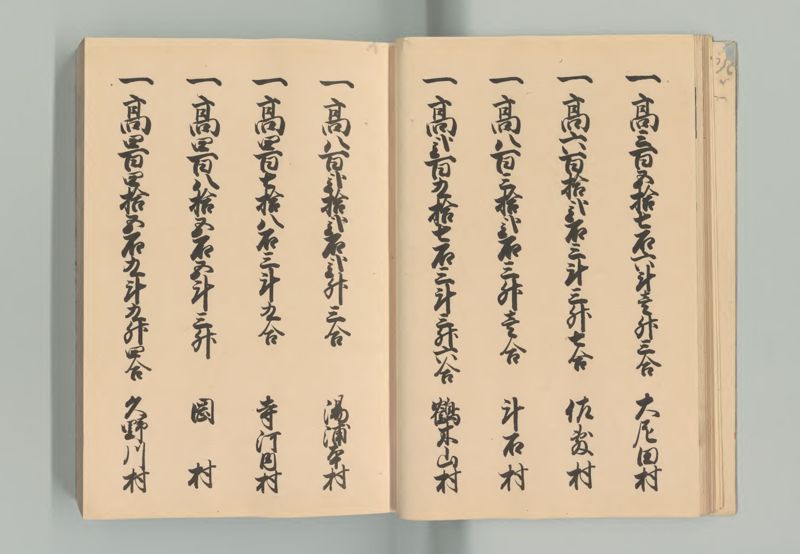 一高三百五拾七石六斗壱升三合 大尼田村
一高六百拾弐石三斗三升七合 佐敷村
一高八百三拾弐石三升壱合 計石村
一高弐百九拾七石三斗三升六合 鶴木山村
一高八百弐拾弐石弐升三合 湯浦本村
一高四百七拾八石三斗九合 寺河内村
一高四百八拾五石五斗三升 岡村
一高四百四拾五石九斗九升四合 久野川村